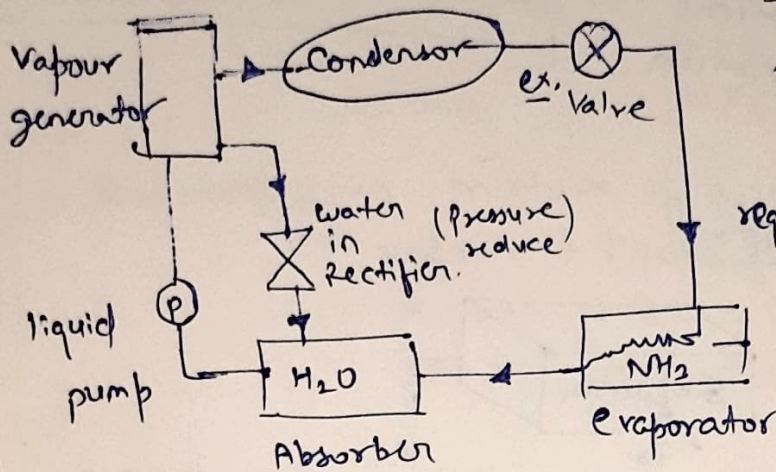 Vapour
generator
Condensor
ex. Valve
water
in
Rectifier.
(Pressure)
reduce
req
P
liquid
pump
H2O
Absorber
NH3
evaporator